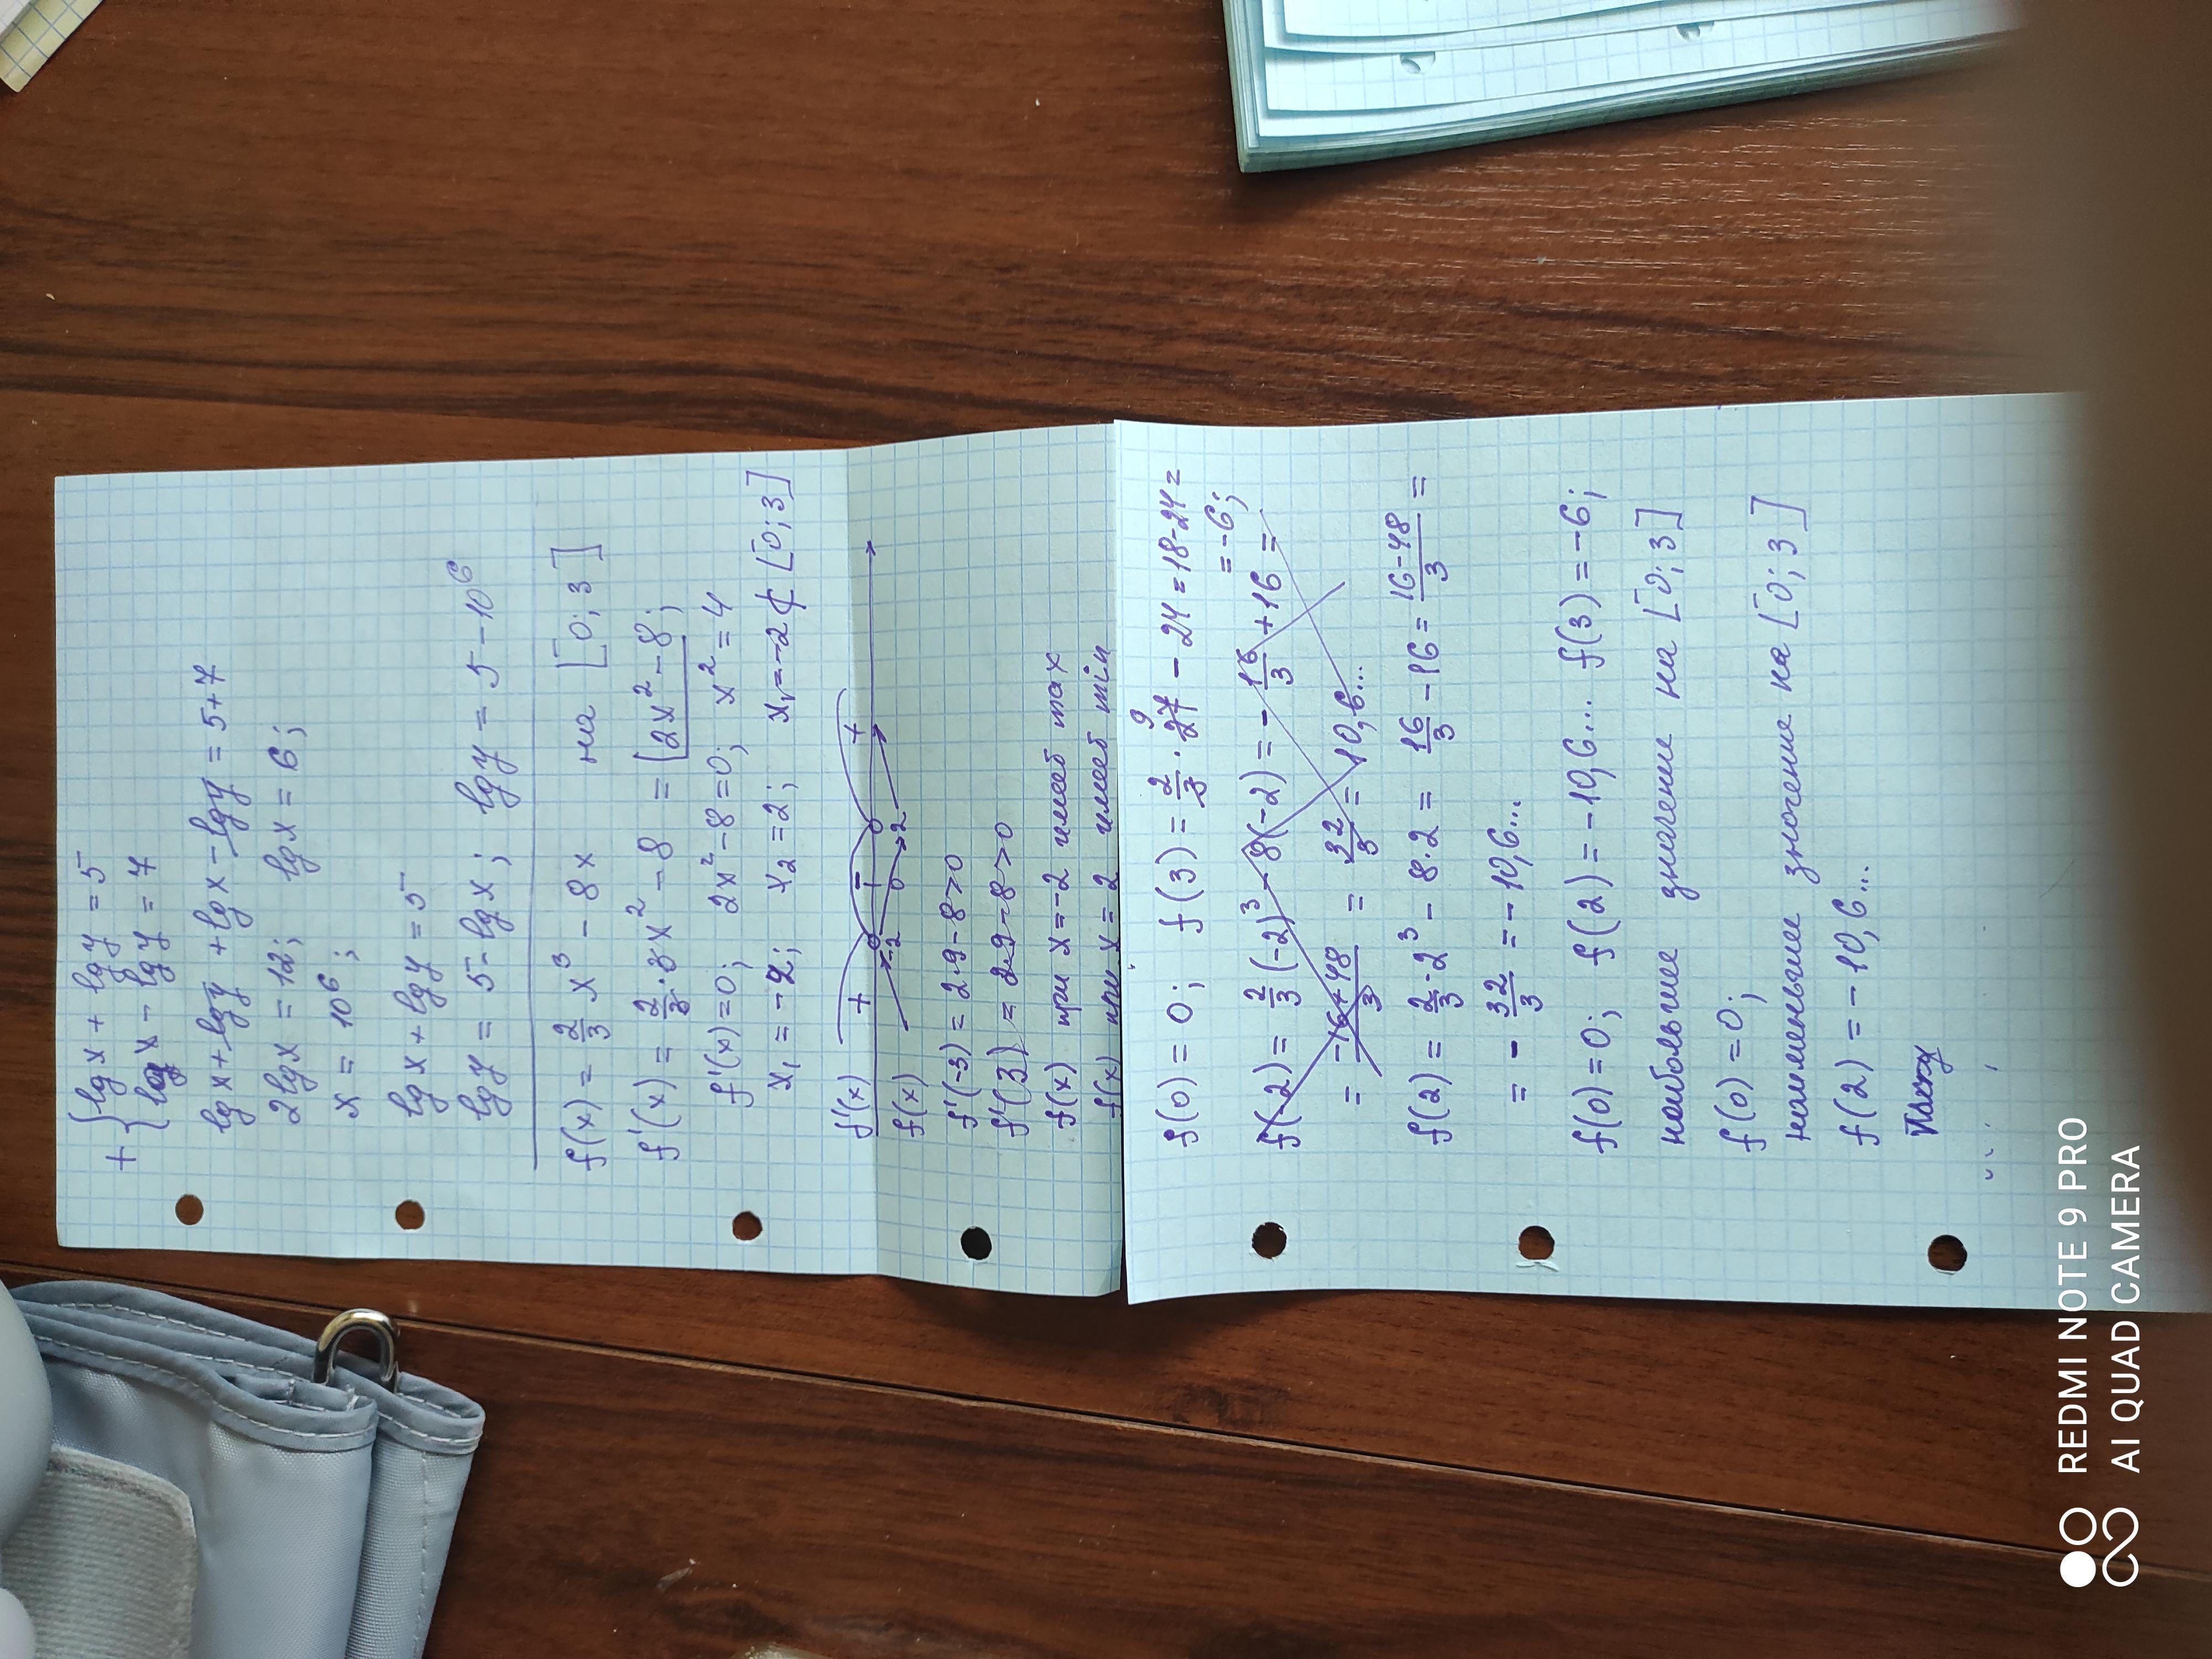 + { lg x + lg y = 5
lg x - lg y = 7
lg x + lg y + lg x - lg y = 5+7
2 lg x = 12; lg x = 6;
x = 10⁶;
lg x + lg y = 5
lg y = 5 - lg x; lg y = 5 - 10⁶
f(x) = 2/3 x³ - 8x на [0; 3]
f'(x) = 2/3 · 3x² - 8 = 2x² - 8;
f'(x) = 0; 2x² - 8 = 0; x² = 4
x₁ = -2; x₂ = 2; x₁ = -2 ∉ [0; 3]
f'(x) + - +
f(x) -2 0 2
f'(-3) = 2·9 - 8 > 0
f'(3) = 2·9 - 8 > 0
f(x) при x = -2 имеет max
f(x) при x = 2 имеет min
f(0) = 0; f(3) = 2/3 · 27 - 24 = 18 - 24 =
9
= -6;
f(-2) = 2/3 (-2)³ - 8(-2) = - 16/3 + 16 =
= -16+48/3 = 32/3 = 10,6...
f(2) = 2/3 · 2³ - 8·2 = 16/3 - 16 = 16-48/3 =
= - 32/3 = -10,6...
f(0) = 0; f(2) = -10,6... f(3) = -6;
наибольшие значение на [0; 3]
f(0) = 0;
наименьшие значение на [0; 3]
f(2) = -10,6...
REDMI NOTE 9 PRO
AI QUAD CAMERA